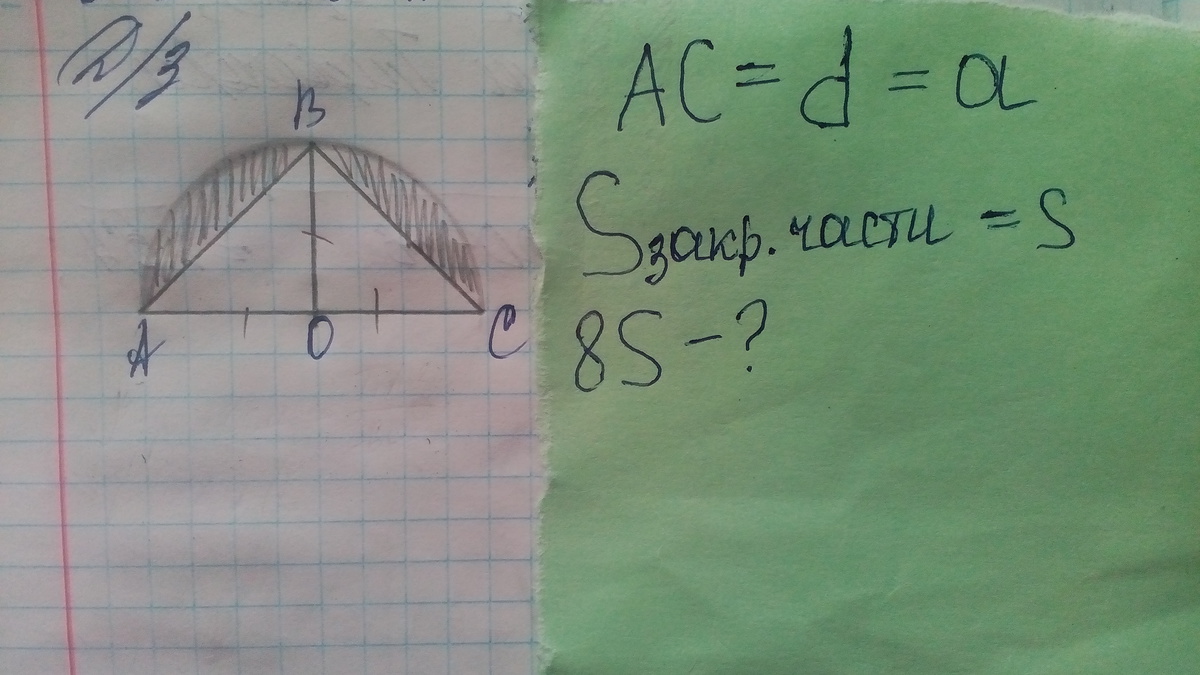 Д/з
B
A O C
AC = d = a
Sзакр. части = S
8S - ?